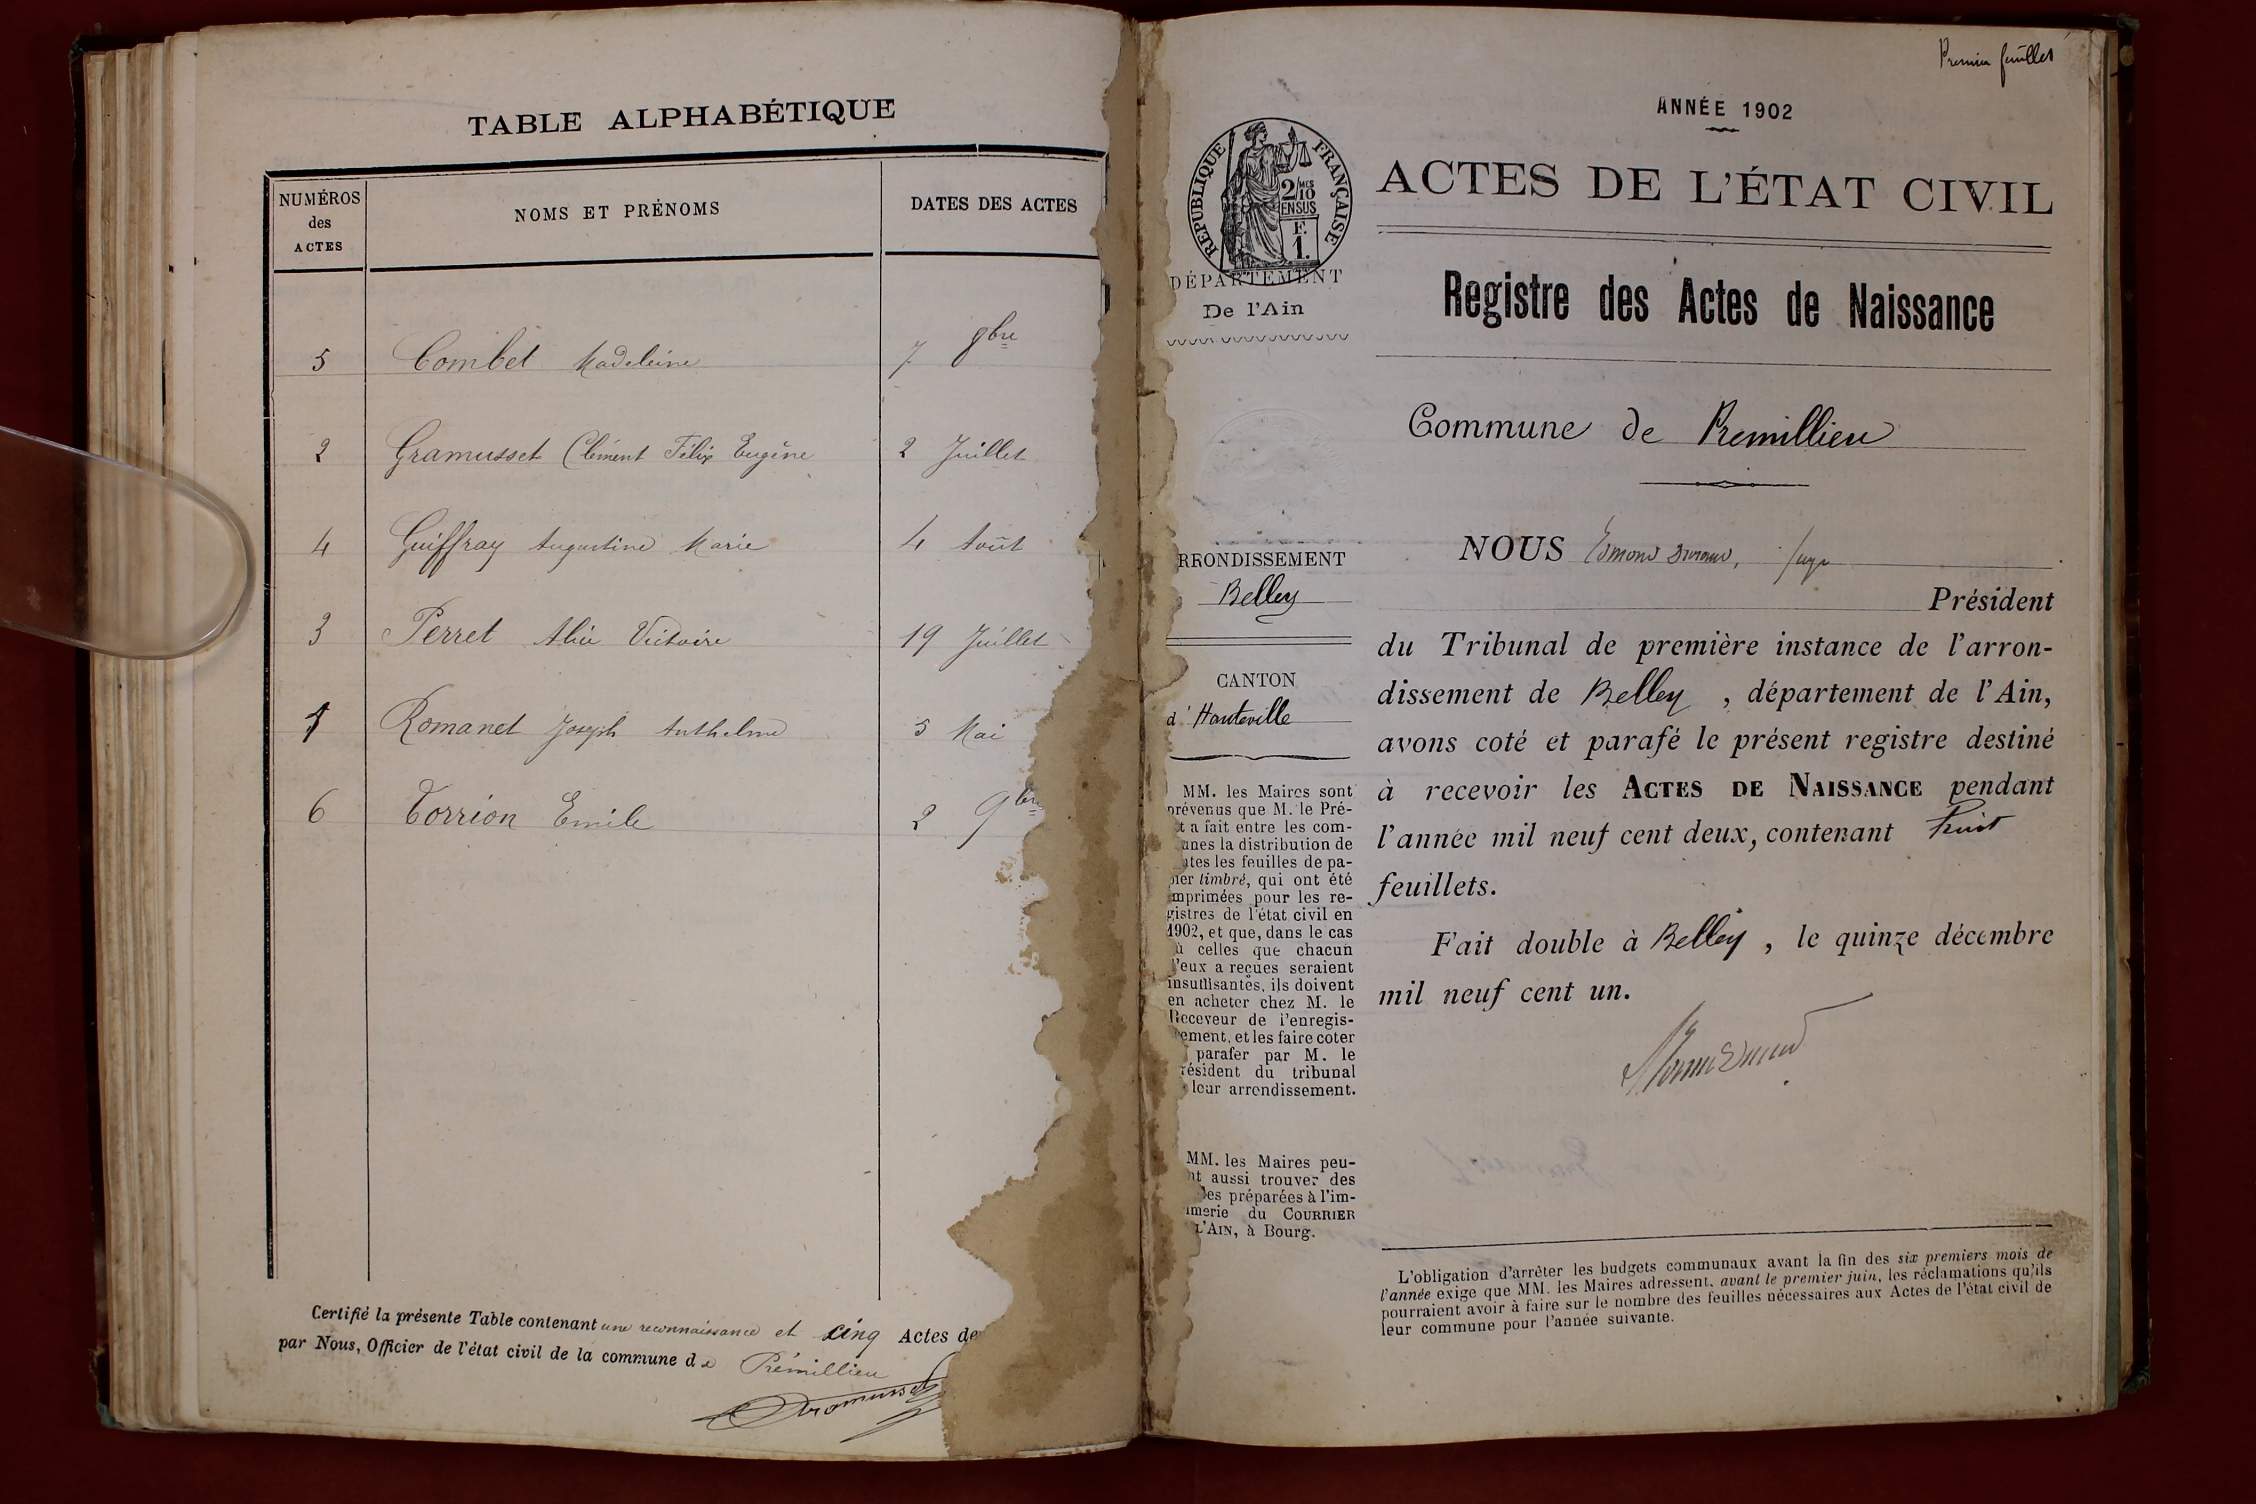 TABLE ALPHABÉTIQUE
NUMÉROS
des
ACTES
NOMS ET PRÉNOMS
DATES DES ACTES
5 Combet Madeleine 7 8bre
2 Gramusset Clément Félix Eugène 2 Juillet
4 Guiffray Augustine Marie 4 Août
3 Perret Alice Victoire 19 Juillet
1 Romanet Joseph Anthelme 5 Mai
6 Torrion Emile 2 9bre
Certifié la présente Table contenant une reconnaissance et cinq Actes de
par Nous, Officier de l'état civil de la commune de Prémillieu
Gramusset
Premier feuillet
ANNÉE 1902
RÉPUBLIQUE FRANÇAISE
2/10 MES
EN SUS
F.
1.
DÉPARTEMENT
De l'Ain
ACTES DE L'ÉTAT CIVIL
Registre des Actes de Naissance
Commune de Premillieu
RRONDISSEMENT
Belley
CANTON
d'Hauteville
MM. les Maires sont
prévenus que M. le Pré-
t a fait entre les com-
unes la distribution de
utes les feuilles de pa-
pier timbré, qui ont été
imprimées pour les re-
gistres de l'état civil en
1902, et que, dans le cas
ù celles que chacun
d'eux a reçues seraient
insuffisantes, ils doivent
en acheter chez M. le
Receveur de l'enregis-
rement, et les faire coter
t parafer par M. le
résident du tribunal
leur arrondissement.
MM. les Maires peu-
nt aussi trouver des
les préparées à l'im-
imerie du COURRIER
L'AIN, à Bourg.
NOUS Edmond Durand, Juge
Président
du Tribunal de première instance de l'arron-
dissement de Belley, département de l'Ain,
avons coté et parafé le présent registre destiné
à recevoir les ACTES DE NAISSANCE pendant
l'année mil neuf cent deux, contenant huit
feuillets.
Fait double à Belley, le quinze décembre
mil neuf cent un.
L'obligation d'arrêter les budgets communaux avant la fin des six premiers mois de
l'année exige que MM. les Maires adressent, avant le premier juin, les réclamations qu'ils
pourraient avoir à faire sur le nombre des feuilles nécessaires aux Actes de l'état civil de
leur commune pour l'année suivante.